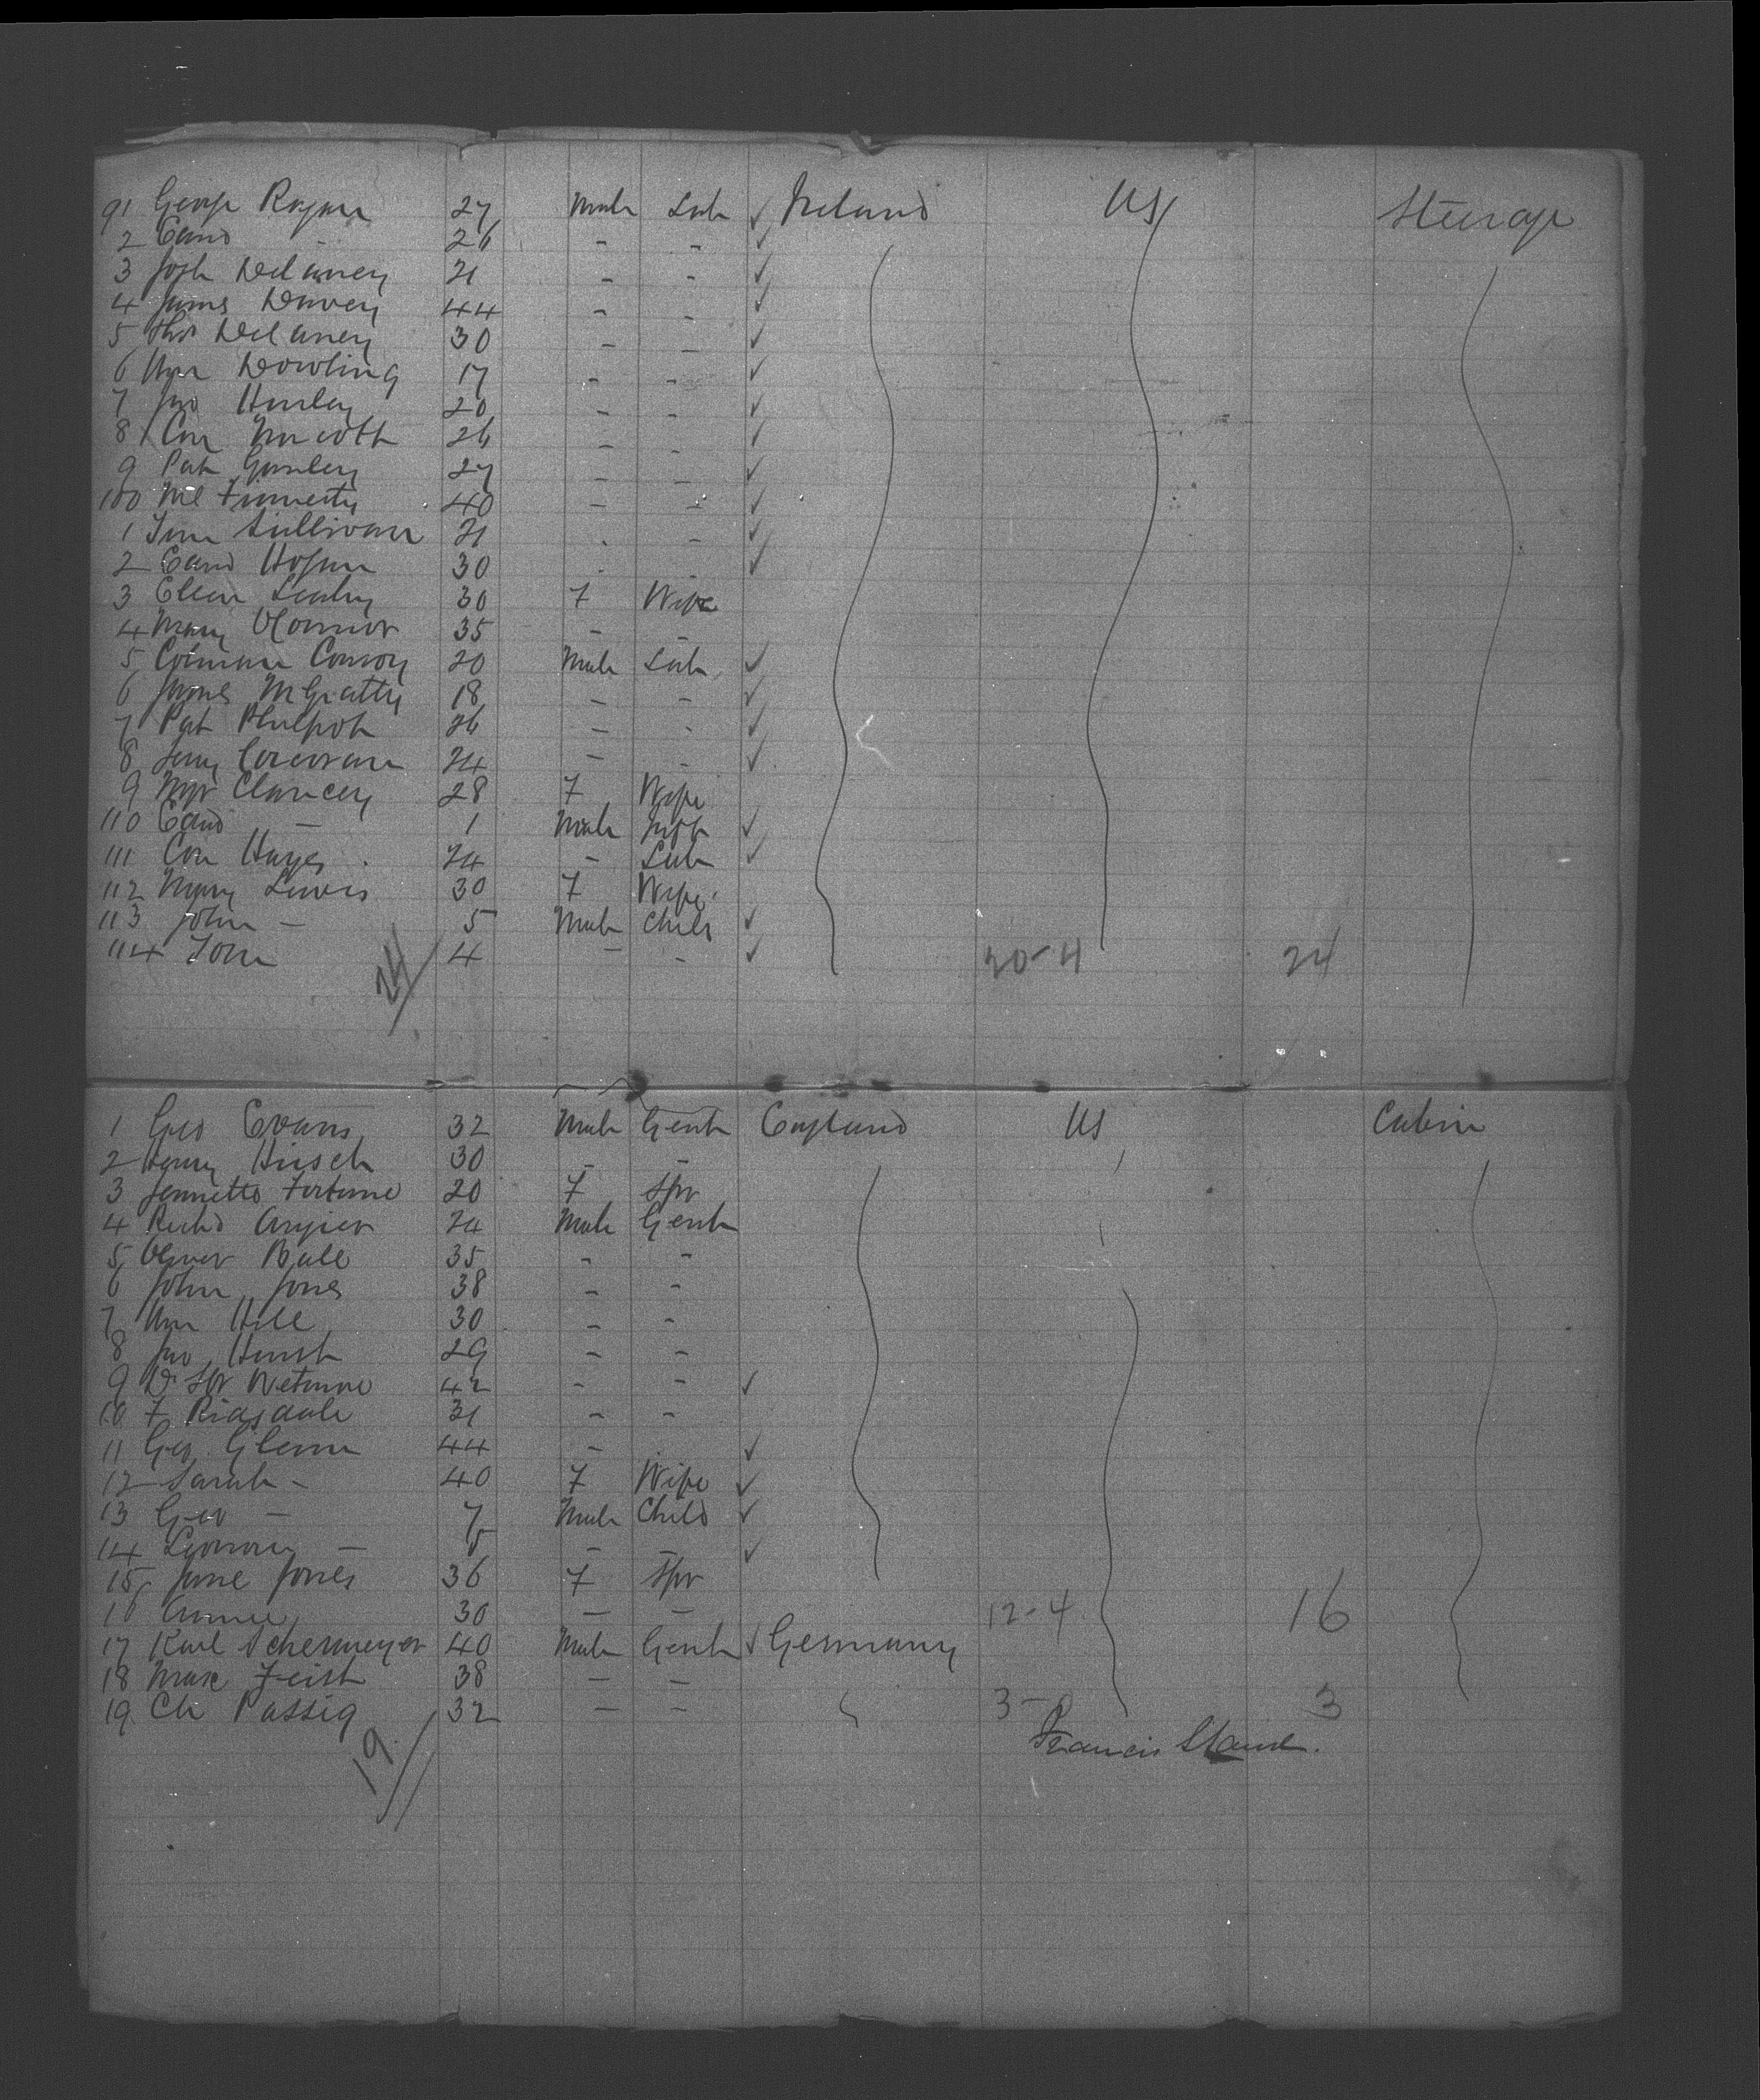 91 George Rogan 27 Male Lab ✓ Ireland US Steerage
2 Edwd - 26 - - ✓
3 Josh Delaney 21 - - ✓
4 James Davey 44 - - ✓
5 Thos Delaney 30 - - ✓
6 Wm Dowling 17 - - ✓
7 Jno Hurley 20 - - ✓
8 Con 26 - - ✓
9 Pat Gormley 27 - - ✓
100 Ml Finnerty 40 - - ✓
1 Tim Sullivan 21 - - ✓
2 Edwd Hogan 30 - - ✓
3 Ellen Leahy 30 F Wife
4 Mary OConnor 35 - -
5 Colman Conroy 20 Male Lab ✓
6 James McGratty 18 - - ✓
7 Pat Philpot 26 - - ✓
8 Jerry Corcoran 24 - - ✓
9 Mgr Clancey 28 F Wife
110 Edwd - 1 Male Inft ✓
111 Con Hayes 24 - Lab ✓
112 Mary Lewis 30 F Wife
113 John - 5 Male Child ✓
114 Tom 4 - - ✓ 20-4 24
24
1 Geo Evans 32 Male Gent England US Cabin
2 Henry Hirsch 30 - -
3 Jennetto Fortune 20 F Spr
4 Richd Angier 24 Male Gent
5 Oliver Bale 35 - -
6 John Jones 38 - -
7 Wm Hill 30 - -
8 Jno Hurst 29 - -
9 42 - - ✓
10 F Ridsdale 31 - -
11 Geo Glenn 44 - ✓
12 Sarah - 40 F Wife ✓
13 Geo - 7 Male Child ✓
14 - 5 - - ✓
15 Jane Jones 36 F Spr
16 Annie 30 - - 12-4 16
17 Karl Schermeyer 40 Male Gent ✓ Germany
18 Max Feist 38 - -
19 Ch Passig 32 - - 3-0 3
Francis
19